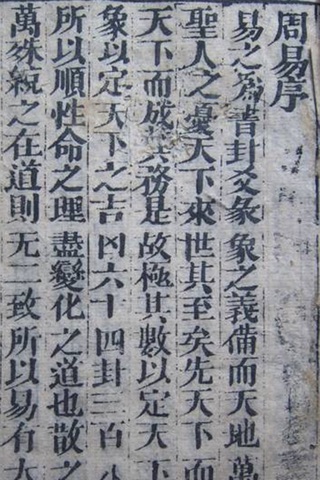 周易序
易之為書卦爻彖象之義備而天地萬
聖人之憂天下來世其至矣先天下而
天下而成其務是故極其數以定天下
象以定天下之吉凶六十四卦三百八
所以順性命之理盡變化之道也散之
萬殊統之在道則无二致所以易有太